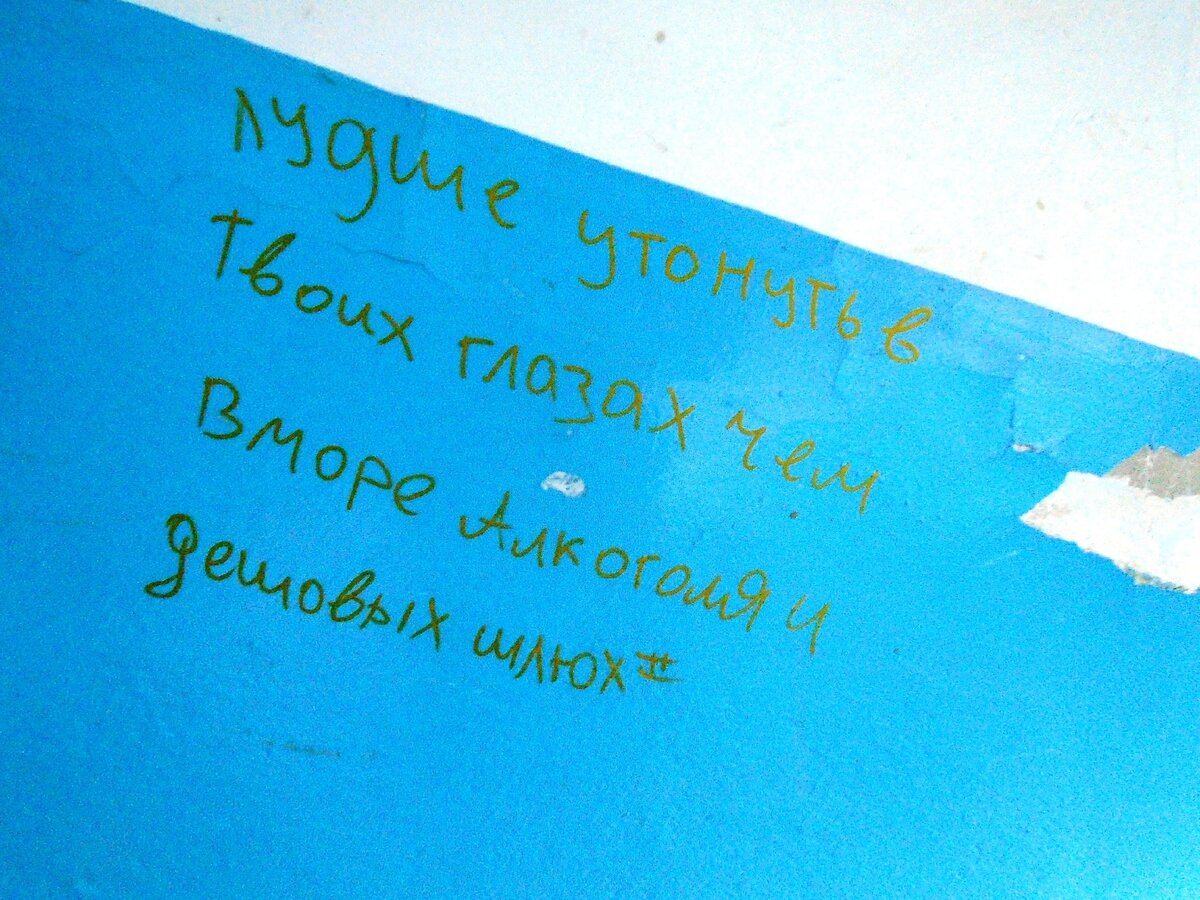 лудше утонуть в
твоих глазах чем
в море Алкоголя и
дешовых шлюх #